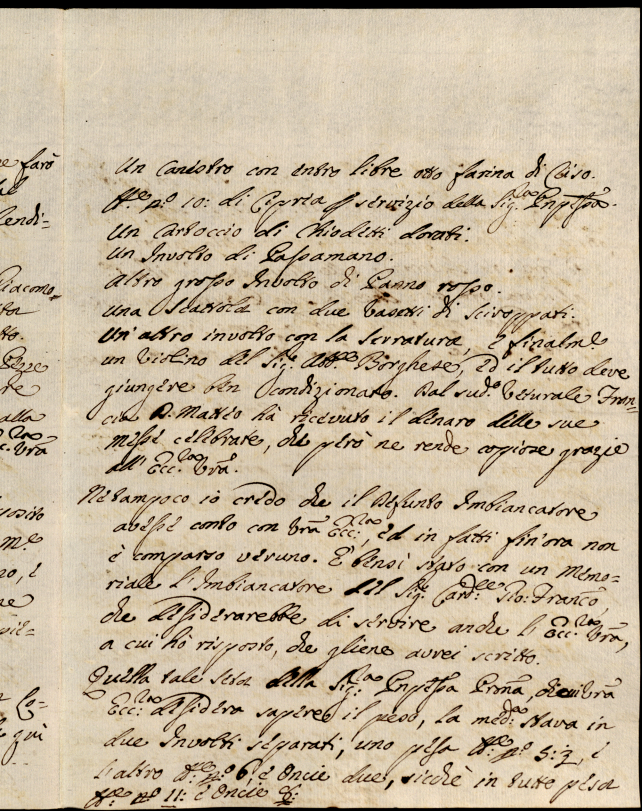 e farò
lendi=
Giacomo
alla
Ecc.za Vrã
posito
no, è
ne
qui
Un Canestro con entro libre otto farina di Ciso.
lbe nº 10: di Cipria p servizio della Sig.ra Pnpessa.
Un Cartoccio di Chiodetti dorati.
Un Involto di Passamano.
Altro grosso Involto di Panno rosso.
Una Scattola con due Vasetti di Sciroppati.
Un'altro involto con la serratura, e finalme
un Violino del Sig.e Abb.e Borghese, ed il tutto deve
giungere ben Condizionato. Dal sud.o Veturale Fran=
cia D. Matteo hà ricevuto il denaro delle sue
messe celebrate, che però ne rende copiose grazie
all' Ecc.za Vrã.
Netampoco io credo che il Defunto Imbiancatore
avesse conto con Vrã Ecc.za, ed in fatti fin'ora non
è comparso veruno. E' bensi stato con un Memo=
riale l'Imbiancatore del Sig. Card.le Gio: Franco,
che desiderarebbe di servire anche l'Ecc.za Vrã,
a cui hò risposto, che gliene avrei scritto.
Quella tale seta della Sig.ra Pnpessa Prona, che Vrã
Ecc.za desidera sapere il peso, la med.a stava in
due Involti separati, uno pesa lbe nº 5:2, e
l'altro lbe nº 6, e Oncie due, sicchè in tutte pesa
lbe nº 11: e Oncie